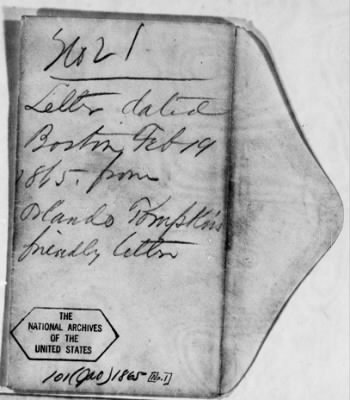 No 21
Letter dated
Boston, Feb 19
1865. from
Orlando Tompkins
friendly letter
THE
NATIONAL ARCHIVES
OF THE
UNITED STATES
101 (JAO) 1865 [No. 1]